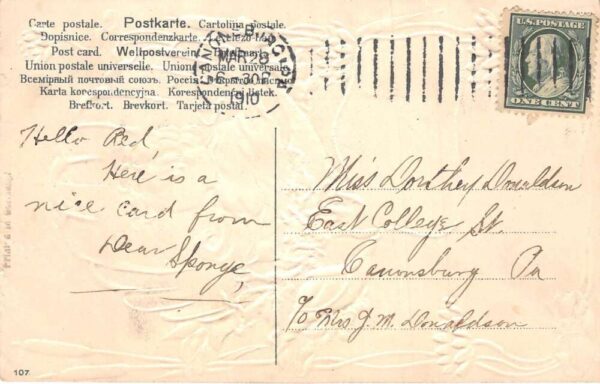 Carte postale. Postkarte. Cartolina postale.
Dopisnice. Correspondenzkarte.
Post card. Weltpostverein.
Union postale universelle. Unión postale universal
Всемірный почтовый союзъ. Россія.
Karta korespondencyjna. Korespondenční lístek.
Brefkort. Brevkort. Tarjeta postal.
MAR 28
1910
U.S. POSTAGE
ONE CENT
Hello Red,
Here is a
nice card from
Dear Sponge,
Miss Dorothey Donaldson
East College St.
Canonsburg Pa
c/o Mrs J. M. Donaldson
107